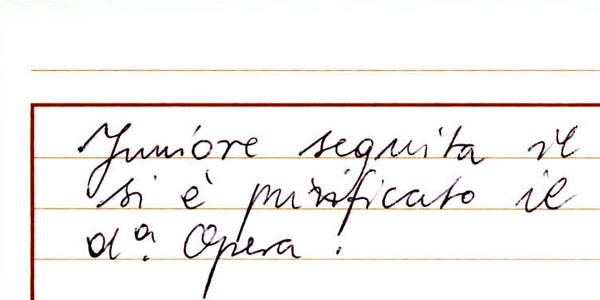 Juniore seguita il
si è purificato il
dª. Opera.